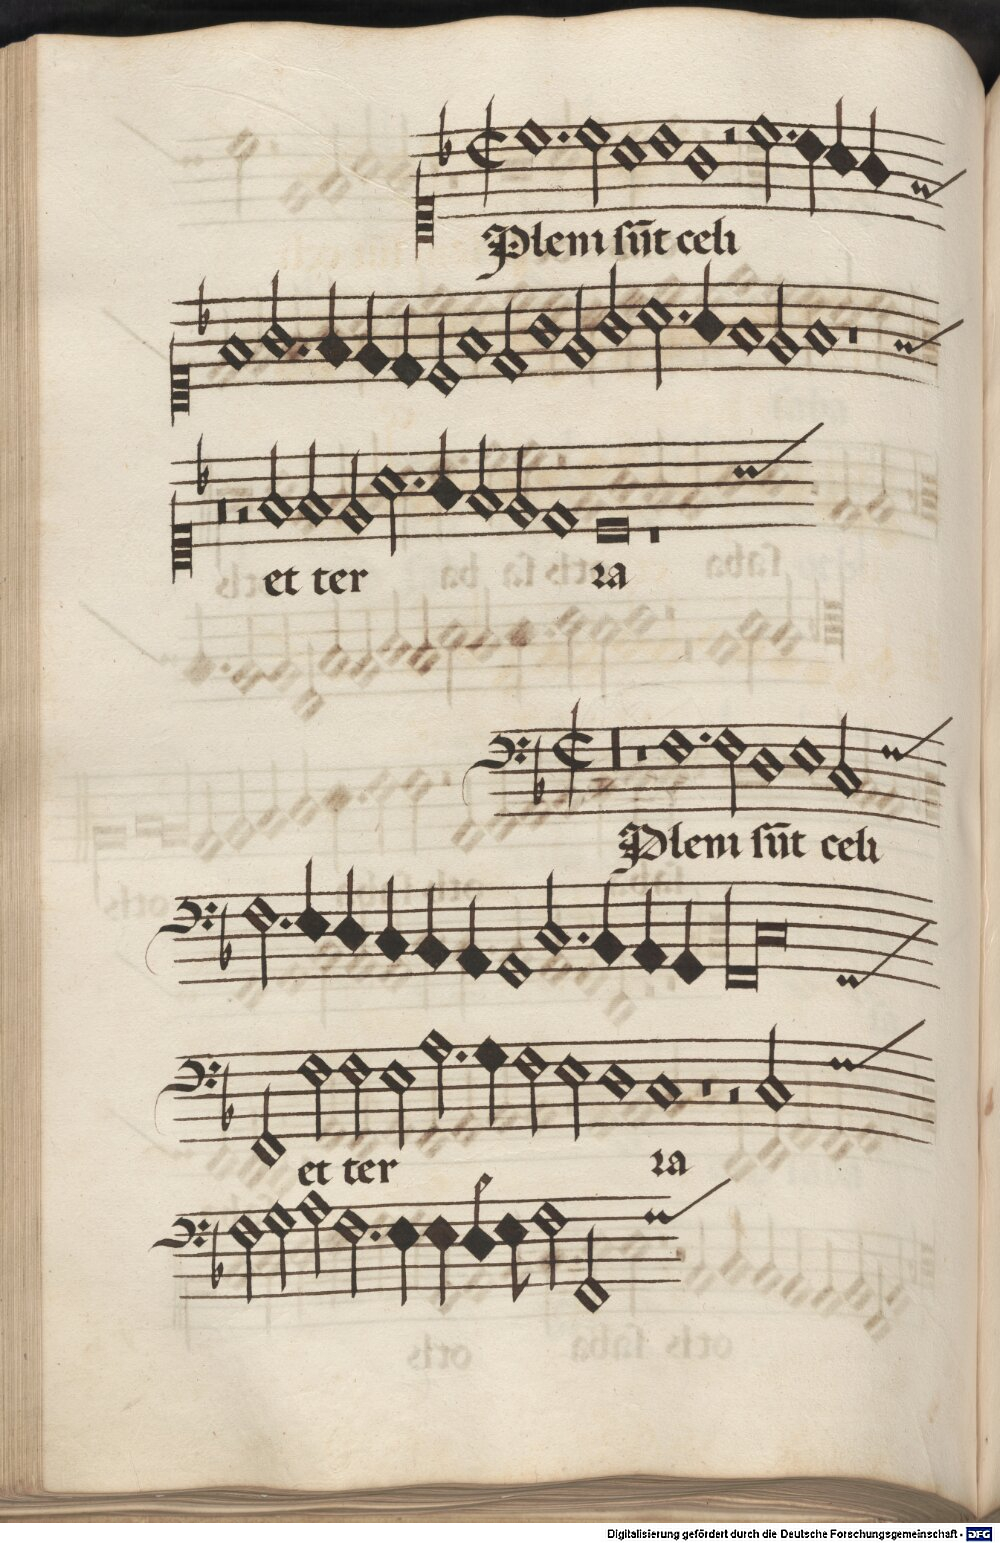 Pleni sūt celi
et ter ra
Pleni sūt celi
et ter ra
Digitalisierung gefördert durch die Deutsche Forschungsgemeinschaft - DFG